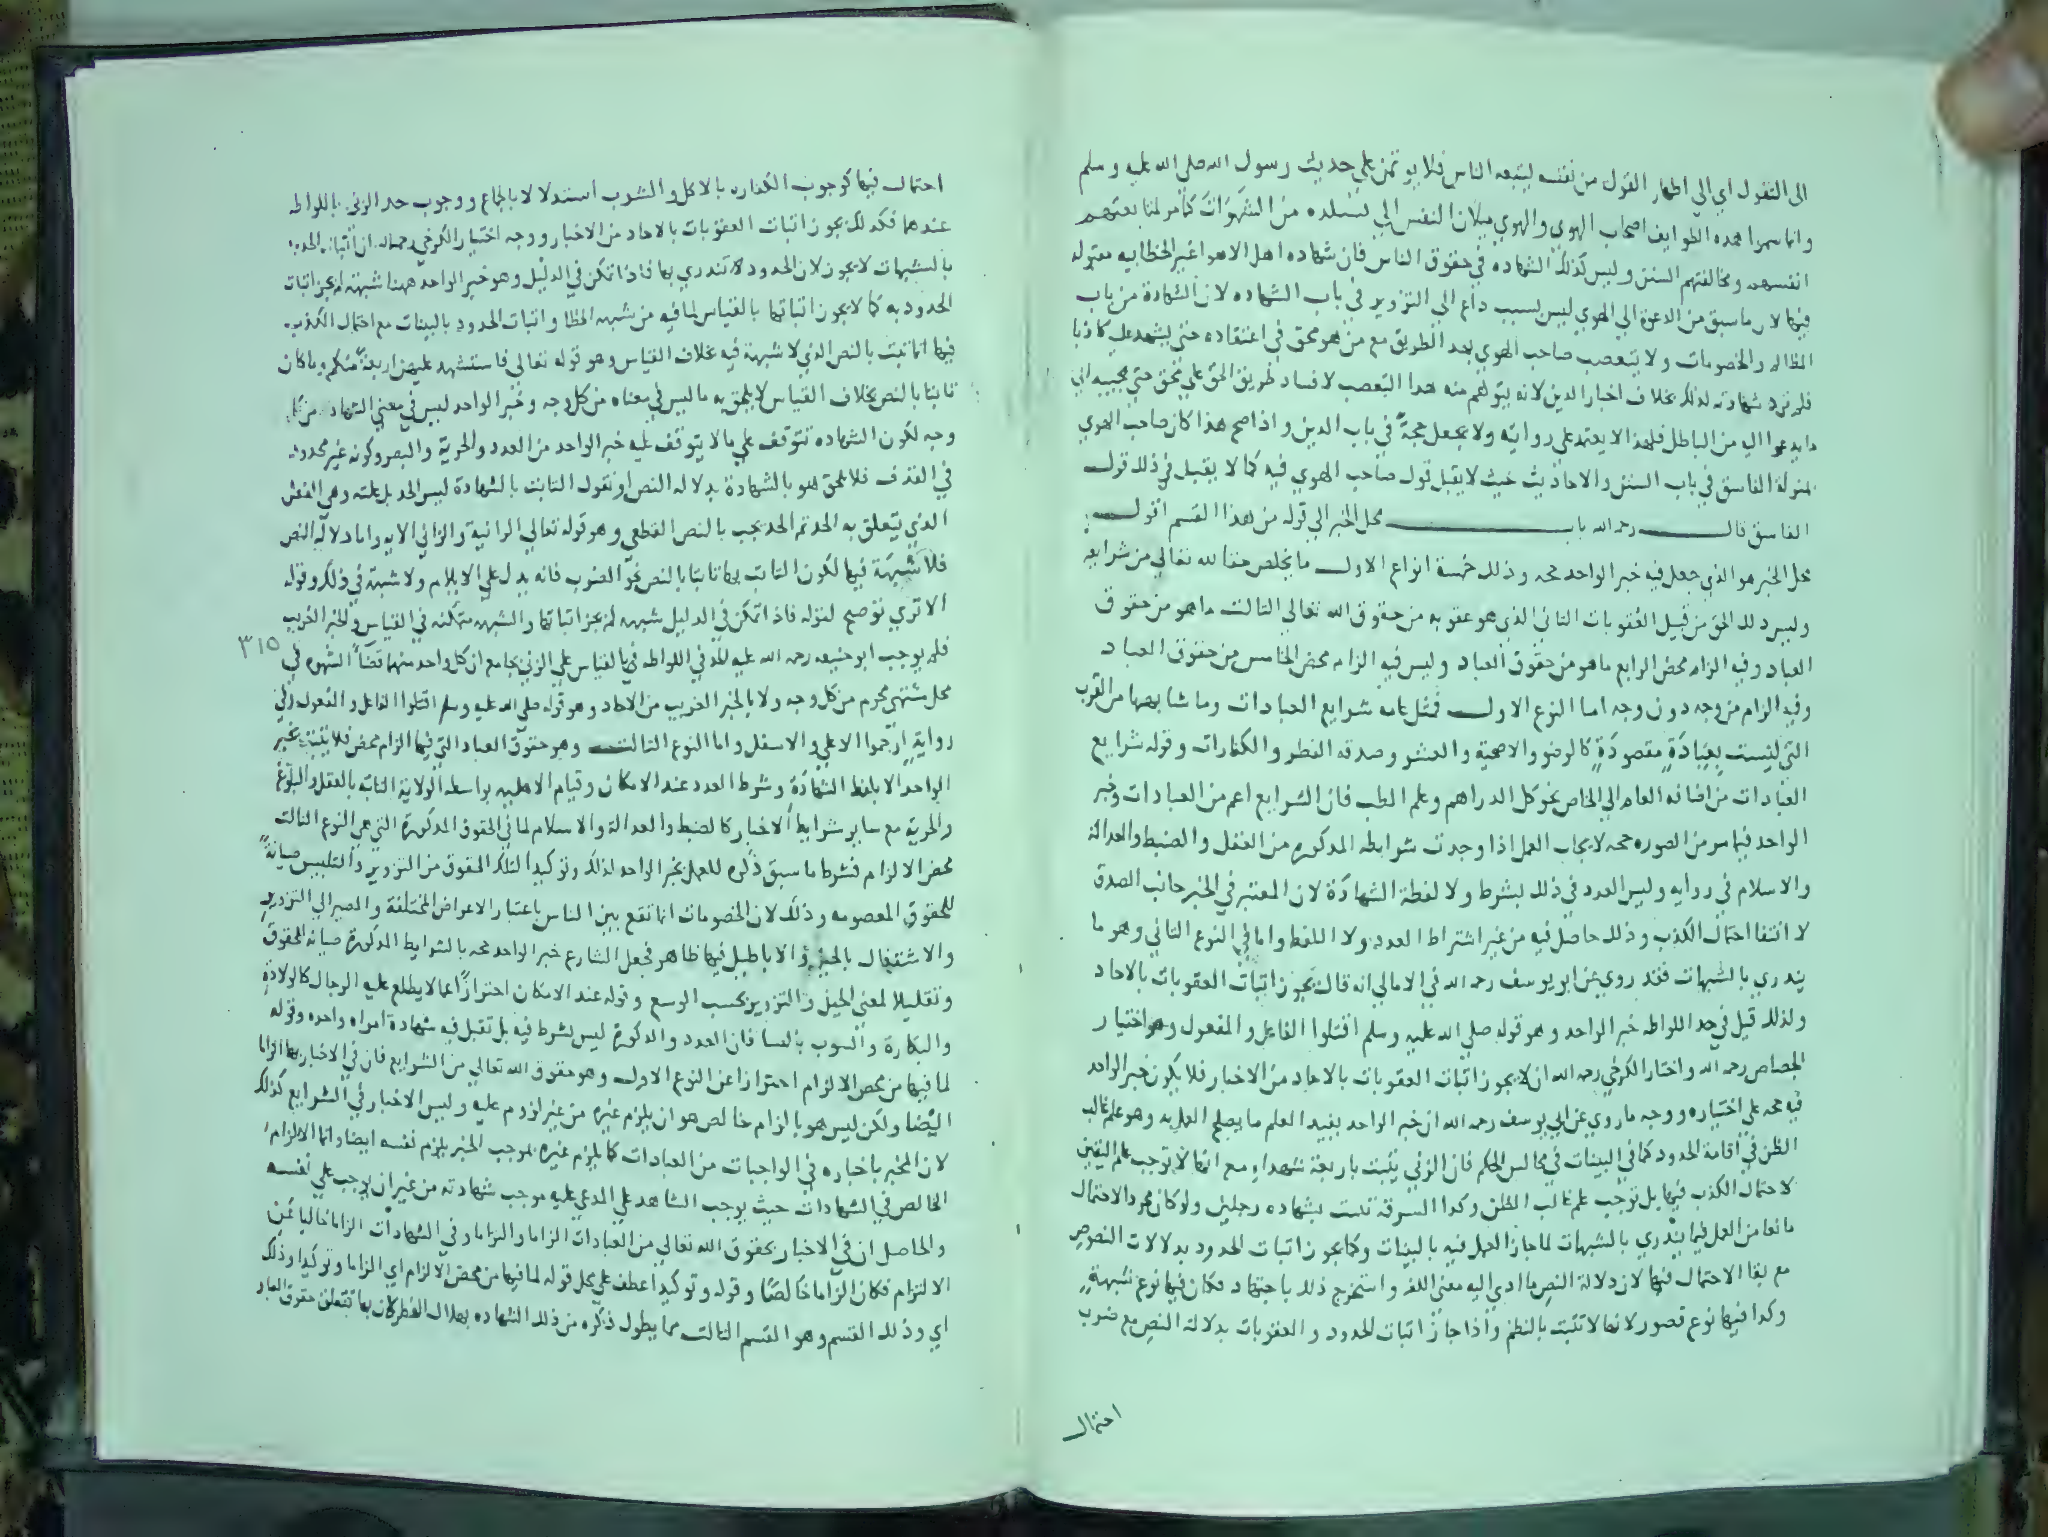 الى التقول اي الي اظهار القول من نفسه ليتبعه الناس فلا يوتمن علي حديث رسول الله صلى الله عليه وسلم
وانما سموا هذه الطوايف اصحاب الهوي والهوي ميلان النفس الي تستلذه من الشهوات كأمر لمتابعتهم
انفسهم ومخالفتهم السنن وليس كذلك الشهاده في حقوق الناس فان شهاده اهل الاهوا غير الخطابيه مقبوله
فيها لان ما سبق من الدعوة الي الهوي ليس بسبب داع الي التزوير في باب الشهاده لان الشهادة من باب
المظالم والخصومات ولا يتعصب صاحب الهوي بهذ الطريق مع من هو محق في اعتقاده حتي يشهد عليه كاذبا
فلم ترد شهادته لذلك بخلاف اخبار الدين لانه يتوهم منه هدا التعصب لافساد طريق الحق علي محق حتي يجيبه الي
ما يدعوا اليه من الباطل فلهذا لا يعتمد علي روايته ولا يجعل حجة في باب الدين و اذا صح هذا كان صاحب الهوي
بمنزلة الفاسق في باب السنن والاحاديث حيث لا يقبل قول صاحب الهوي فيه كما لا يقبل في ذلك قول
الفاسق قال رحمه الله باب محل الخبر الي قوله من هذا القسم اقول
محل الخبر هو الذي جعل فيه خبر الواحد حجه وذلك خمسة انواع الاول ما يخلص حقا لله تعالي من شرايعه
وليس ذلك الحق من قبيل العقوبات الثاني الذي هو عقوبه من حقوق الله تعالي الثالث ما هو من حقوق
العباد وفيه الزام محض الرابع ما هو من حقوق العباد وليس فيه الزام محض الخامس من حقوق العباد
وفيه الزام من وجه دون وجه اما النوع الاول فمثل عامه شرايع العبادات وما شابهها من القرب
التي ليست بعبادة مقصودة كالوضو والاضحية والعشر وصدقه الفطر والكفارات وقوله شرايع
العبادات من اضافه العام الي الخاص نحو كل الدراهم وعلم الطب فان الشرايع اعم من العبادات وخبر
الواحد فيها من الصوره حجه لايجاب العمل اذا وجدت شرايطه المدكوره من العقل والضبط والعدالة
والاسلام في روايه وليس العدد في ذلك بشرط ولا لفظة الشهادة لان المعتبر في الخبر جانب الصدق
لانتفا احتمال الكذب وذلك حاصل فيه من غير اشتراط العدد ولا اللفظ واما في النوع الثاني وهو ما
يندري بالشبهات فقد روي عن ابو يوسف رحمه الله في الامالي انه قال يجوز اثبات العقوبات بالاحاد
ولذلك قيل في حد اللواطه خبر الواحد وهو قوله صلي الله عليه وسلم اقتلوا الفاعل والمفعول وهو اختيار
الجصاص رحمه الله واختار الكرخي رحمه الله ان لا يجوز اثبات العقوبات بالاحاد من الاخبار فلا يكون خبر الواحد
فيه حجه علي اختياره ووجه ما روي عن ابي يوسف رحمه الله ان خبر الواحد يفيد العلم ما يصلح العمل به وهو علم غالب
الظن في اقامة الحدود كما في البينات في مجالس الحكم فان الزني يثبت باربعة شهداء مع انها لا توجب علم اليقين
لاحتمال الكذب فيها بل توجب علم غالب الظن وكذا السرقة تثبت بشهاده رجلين ولو كان مجرد الاحتمال
مانعا من العمل فيما يندري بالشبهات لما جاز العمل فيه بالبينات وكما يجوز اثبات الحدود بدلالات النصوص
مع بقا الاحتمال فيها لان دلالة النص ما ادي اليه معني اللفظ واستخرج ذلك باجتهاد فكان فيها نوع شبهة
وكذا فيها نوع قصور لانها لا تثبت بالنظم واذا جاز اثبات الحدود والعقوبات بدلالة النص مع ضرب
احتمال
احتمال فيها كوجوب الكفاره بالاكل والشرب استدلالا بالجماع ووجوب حد الزني باللواطه
عندهما فكدلك يجوز اثبات العقوبات بالاحاد من الاخبار ووجه اختيار الكرخي رحمه الله ان اثبات الحدود
بالشبهات لا يجوز لان الحدود تندري بها فاذا تمكن في الدليل وهو خبر الواحد ههنا شبهة لم يجز اثبات
الحدود به كما لا يجوز اثباتها بالقياس لما فيه من شبه الخطا واثبات الحدود بالبينات مع احتمال الكذب
فيها انما تبت بالنص الذي لا شبهة فيه بخلاف القياس وهو قوله تعالى فاستشهدوا عليهن اربعة منكم وما كان
ثابتا بالنص بخلاف القياس لا يلحق به ما ليس في معناه من كل وجه وخبر الواحد ليس في معني الشهاده من كل
وجه لكون الشهاده تتوقف علي ما لا يتوقف عليه خبر الواحد من العدد والحرية والبصر وكونه غير محدود
في القذف فلا يلحق هو بالشهادة بدلاله النص او نقول الثابت بالشهادة ليس الحد بل علته وهي الفعل
الذي يتعلق به الحد ثم الحد يجب بالنص القطعي وهو قوله تعالي الزانية والزاني الايه واما دلالة النص
فلا شبهة فيها لكون الثابت بها ثابتا بالنص نحو الضرب فانه يدل علي الايلام ولا شبهة في ذلك وقوله
الا تري توضيح لقوله فاذا تمكن في الدليل شبهه لم يجز اثباتها والشبهه متمكنه في القياس والخبر الغريب
فلم يوجب ابو حنيفه رحمه الله عليه الحد في اللواطه بالقياس علي الزني بجامع ان كل واحد منهما قضاء الشهوه في
٣١٥
محل مشتهي محرم من كل وجه ولا بالخبر الغريب من الاحاد وهو قوله صلي الله عليه وسلم اقتلوا الفاعل والمفعول وفي
رواية ارجموا الاعلي والاسفل واما النوع الثالث وهو حقوق العباد التي فيها الزام محض فلا يثبت بخبر
الواحد الا بلفظ الشهادة وشرط العدد عند الامكان وقيام الاهليه بواسطه الولاية الثابته بالعقل والبلوغ
والحرية مع ساير شرايط الاخبار كالضبط والعدالة والاسلام لما في الحقوق المذكورة التي هي النوع الثالث
محض الالزام فشرط ما سبق ذكره للعمل بخبر الواحد لذلك وتوكيدا لتلك الحقوق من التزوير والتلبيس صيانة
للحقوق المعصومه وذلك لان الخصومات انما تقع بين الناس باعتبار الاعراض المختلفة والمصير الي التزوير
والاشتغال بالحيل والاباطيل فيها ظاهر فجعل الشارع خبر الواحد حجه بالشرايط المذكورة صيانه للحقوق
وتقليلا لمعني الحيل والتزوير بحسب الوسع وقوله عند الامكان احترازا عما لا يطلع عليه الرجال كالولادة
والبكارة والعيوب بالنسا فان العدد والذكورة ليس بشرط فيه بل تقبل فيه شهادة امراه واحده وقوله
لما فيها من محض الالزام احترازا عن النوع الاول وهو حقوق الله تعالي من الشرايع فان في الاخبار بها الزاما
ايضا ولكن ليس هو بالزام خالص هو ان يلزم غيره من غير لزوم عليه وليس الاخبار في الشرايع كذلك
لان المخبر باخباره في الواجبات من العبادات كما يلزم غيره بموجب الخبر يلزم نفسه ايضا وانما الالزام
الخالص في الشهادات حيث يوجب الشاهد علي المدعي عليه موجب شهادته من غير ان يوجب علي نفسه
والحاصل ان في الاخبار بحقوق الله تعالي من العبادات الزاما والتزاما وفي الشهادات الزاما خاليا عن
الالتزام فكان الزاما خالصا وقوله وتوكيدا عطف علي محل قوله لما فيها من محض الالزام اي الزاما وتوكيدا وذلك
اي وذلك القسم وهو القسم الثالث مما يطول ذكره من ذلك الشهاده بهلال الفطر لان بها تتعلق حقوق العباد